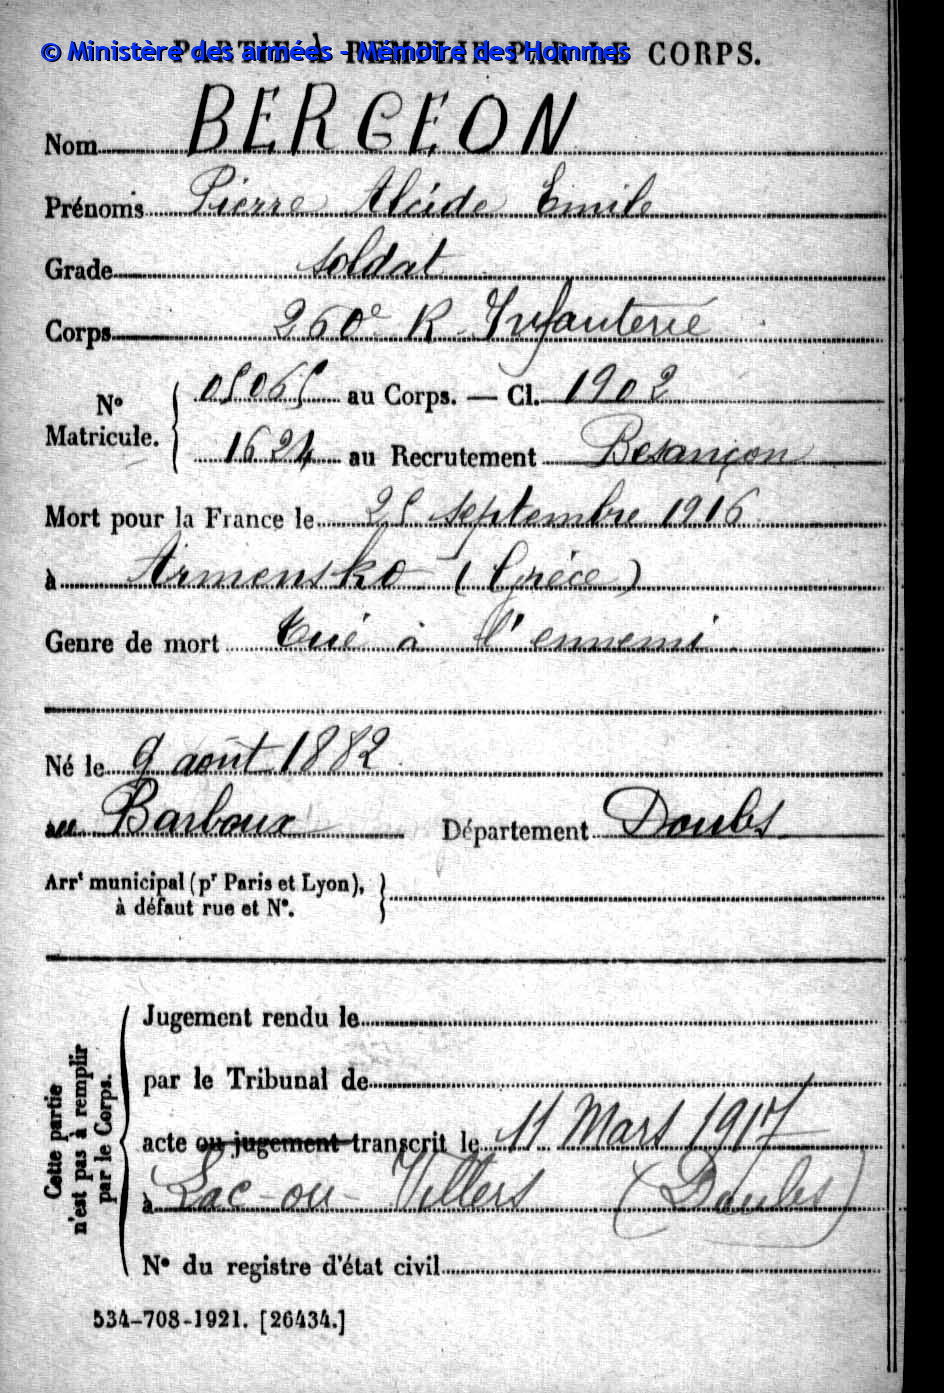 PARTIE À REMPLIR PAR LE CORPS.
© Ministère des armées - Mémoire des Hommes
Nom BERGEON
Prénoms Pierre Alcide Emile
Grade soldat
Corps 260e R. Infanterie
No Matricule. 05065 au Corps. — Cl. 1902
1624 au Recrutement Besançon
Mort pour la France le 25 septembre 1916
à Armensko (Grèce)
Genre de mort tué à l'ennemi
Né le 9 août 1882
au Barboux Département Doubs
Arrt municipal (pr Paris et Lyon),
à défaut rue et No.
Cette partie n'est pas à remplir par le Corps.
Jugement rendu le
par le Tribunal de
acte ou jugement transcrit le 11 Mars 1917
à Lac-ou-Villers (Doubs)
No du registre d'état civil
534-708-1921. [26434.]